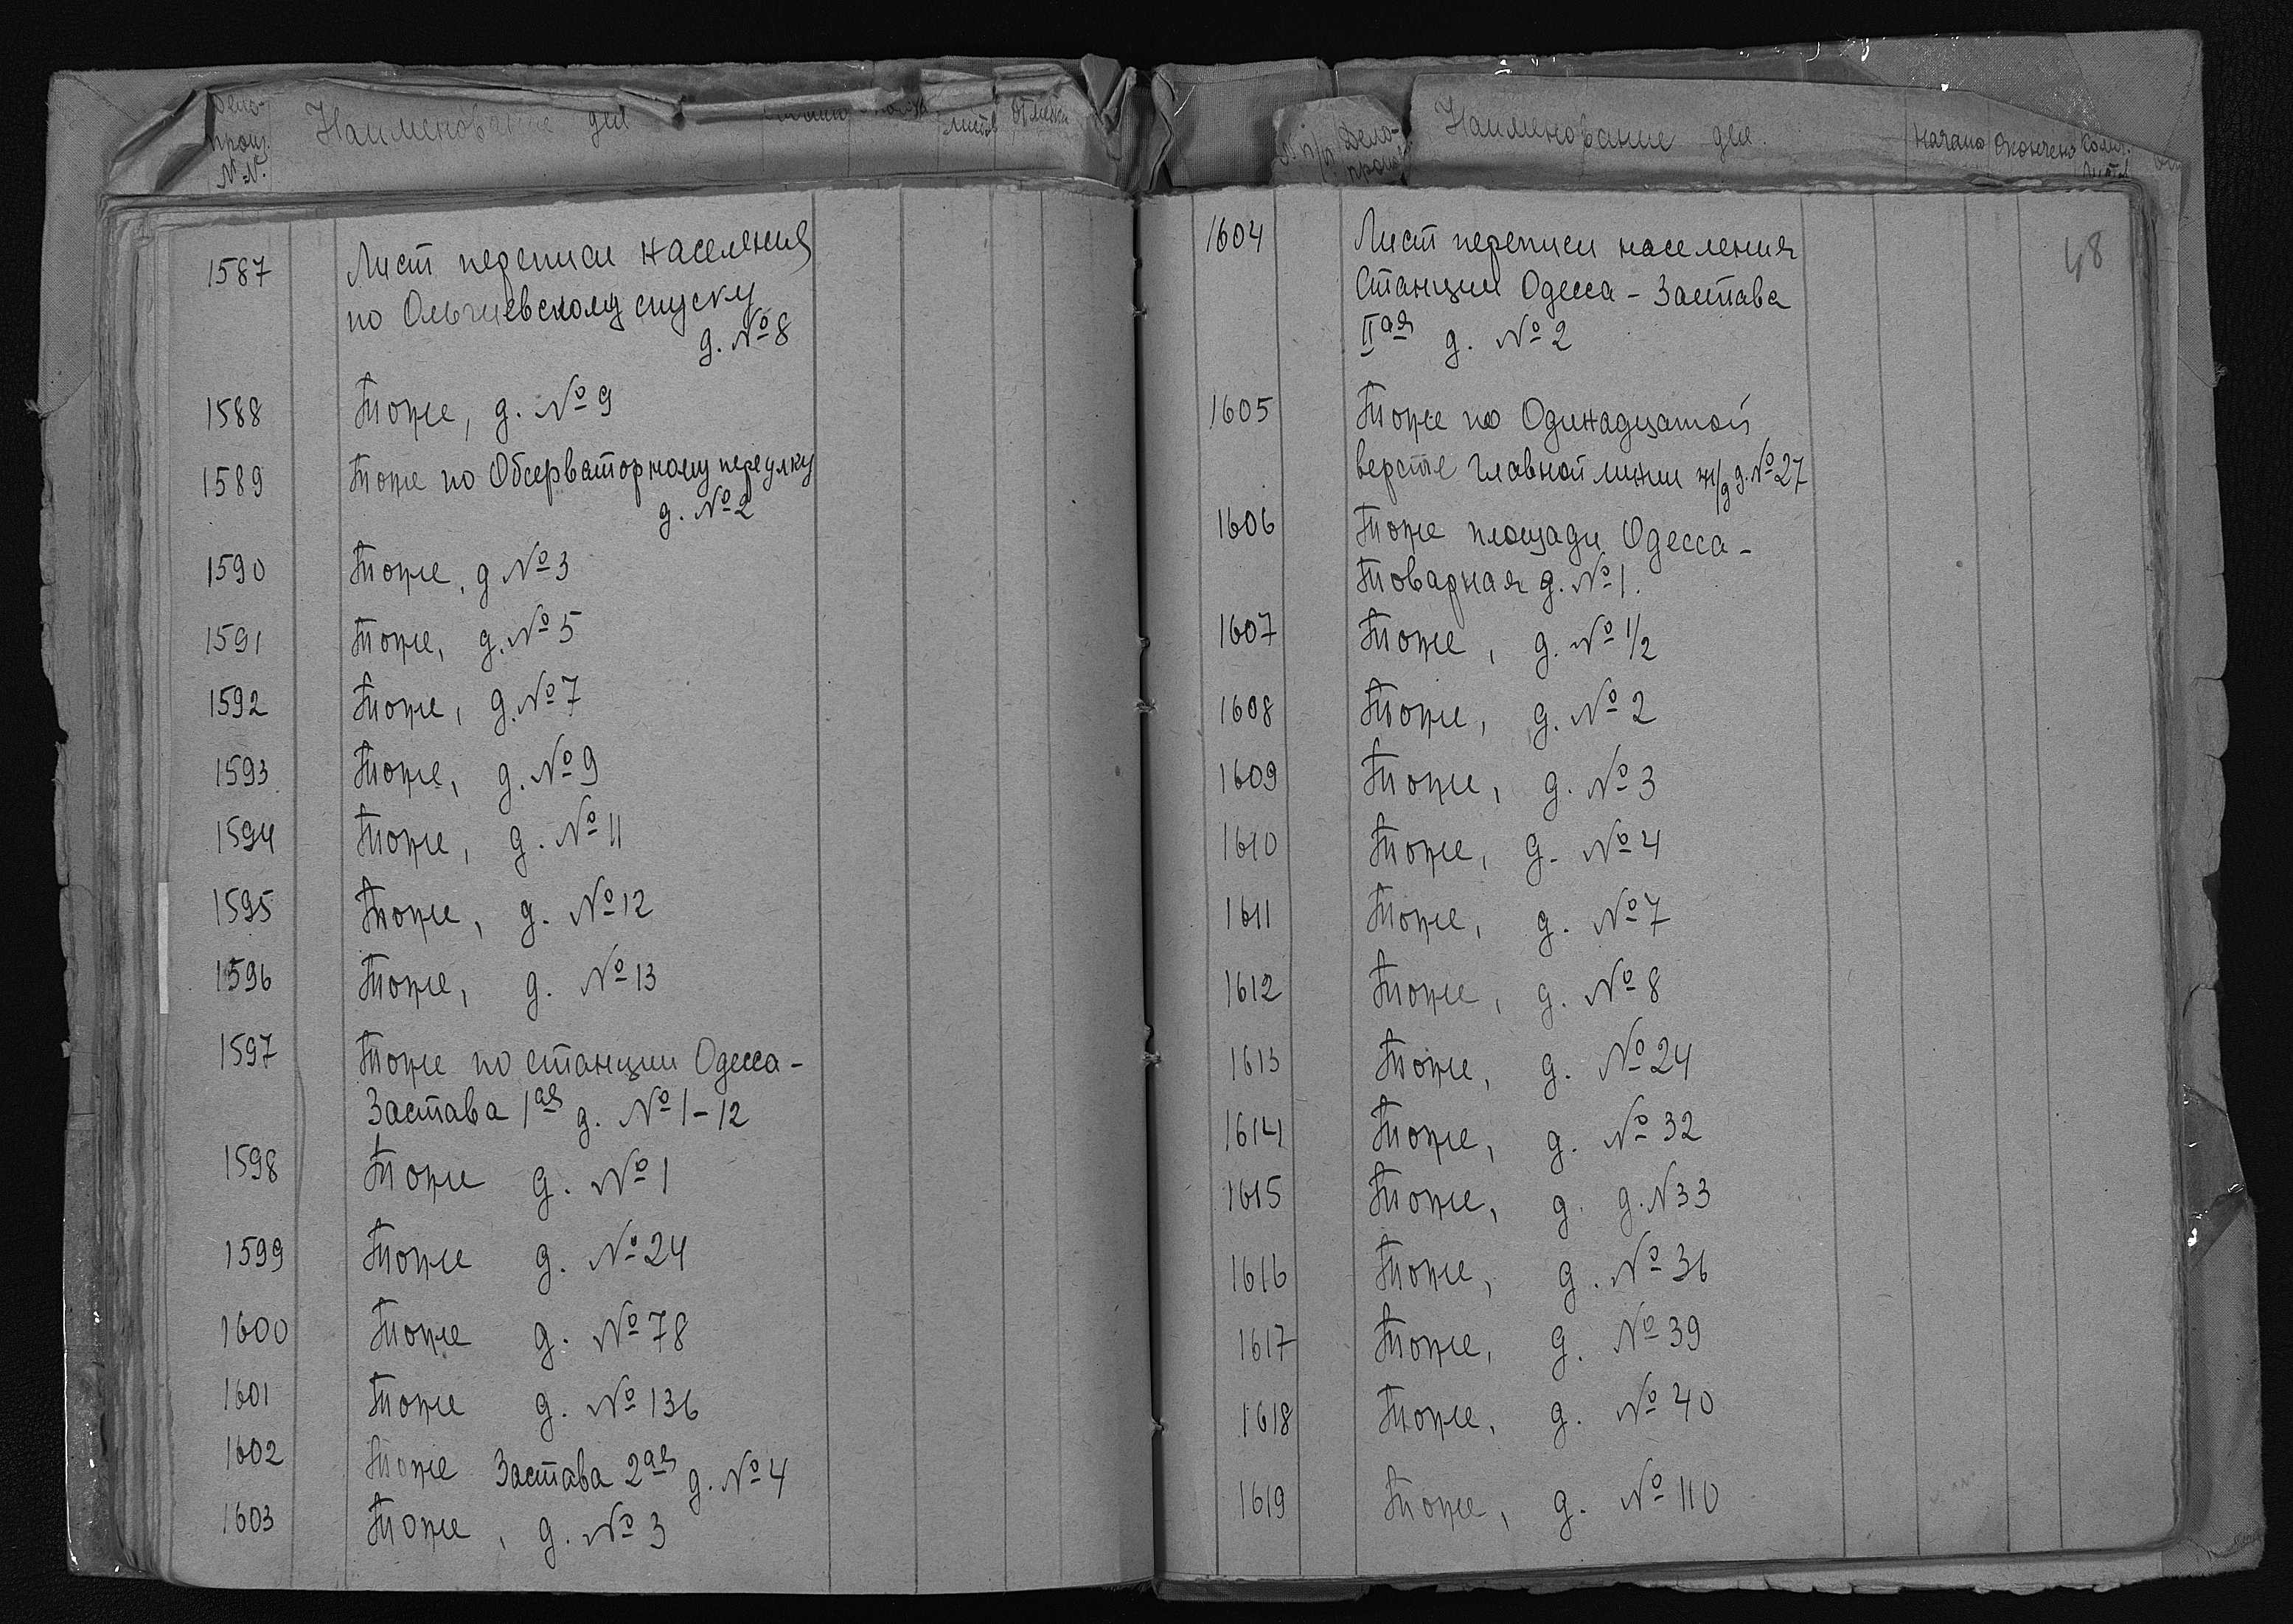 Дело-
произ.
N.N.
Наименование дел
листов
Отметки
1587 Лист переписи населения
по Ольгиевскому спуску
д. № 8
1588 Тоже, д. № 9
1589 Тоже по Обсерваторному переулку
д. № 2
1590 Тоже, д № 3
1591 Тоже, д. № 5
1592 Тоже, д. № 7
1593 Тоже, д. № 9
1594 Тоже, д. № 11
1595 Тоже, д. № 12
1596 Тоже, д. № 13
1597 Тоже по станции Одесса -
Застава 1ая д. № 1-12
1598 Тоже д. № 1
1599 Тоже д. № 24
1600 Тоже д. № 78
1601 Тоже д. № 136
1602 Тоже Застава 2ая д. № 4
1603 Тоже, д. № 3
п/п
Дело-
произ.
Наименование дел.
Начато Окончено Колич.
листов
48
1604 Лист переписи населения
Станции Одесса - Застава
IIая д. № 2
1605 Тоже по Одинадцатой
версте главной линии ж/д д. № 27
1606 Тоже площади Одесса -
Товарная д. № 1.
1607 Тоже, д. № 1/2
1608 Тоже, д. № 2
1609 Тоже, д. № 3
1610 Тоже, д. № 4
1611 Тоже, д. № 7
1612 Тоже, д. № 8
1613 Тоже, д. № 24
1614 Тоже, д. № 32
1615 Тоже, д. д. N 33
1616 Тоже, д. № 36
1617 Тоже, д. № 39
1618 Тоже, д. № 40
1619 Тоже, д. № 110